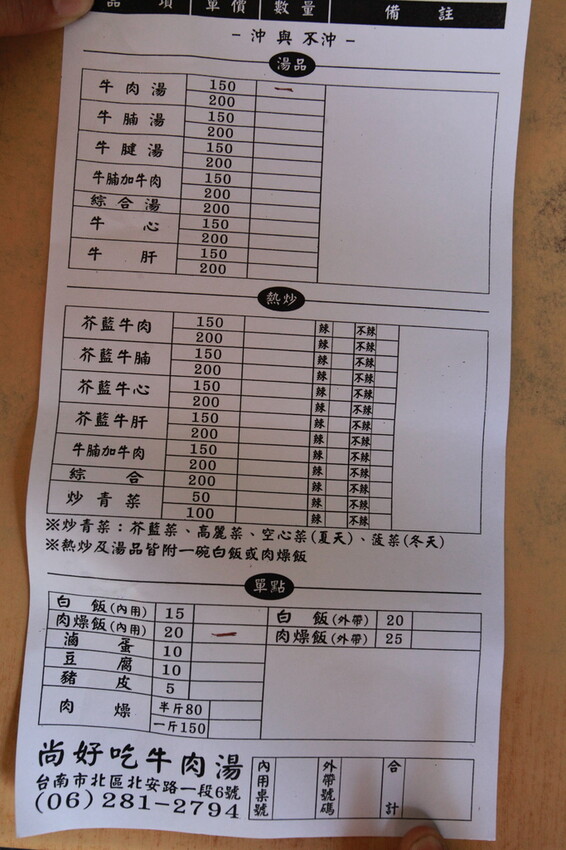 品項 單價 數量 備註
－沖與不沖－
湯品
牛肉湯 150 一
200
牛腩湯 150
200
牛腱湯 150
200
牛腩加牛肉 150
200
綜合湯 200
牛心 150
200
牛肝 150
200
熱炒
芥藍牛肉 150 辣 不辣
200 辣 不辣
芥藍牛腩 150 辣 不辣
200 辣 不辣
芥藍牛心 150 辣 不辣
200 辣 不辣
芥藍牛肝 150 辣 不辣
200 辣 不辣
牛腩加牛肉 150 辣 不辣
200 辣 不辣
綜合 200 辣 不辣
炒青菜 50 辣 不辣
100 辣 不辣
※炒青菜：芥藍菜、高麗菜、空心菜(夏天)、菠菜(冬天)
※熱炒及湯品皆附一碗白飯或肉燥飯
單點
白飯(內用) 15 白飯(外帶) 20
肉燥飯(內用) 20 一 肉燥飯(外帶) 25
滷蛋 10
豆腐 10
豬皮 5
肉燥 半斤80
一斤150
尚好吃牛肉湯
台南市北區北安路一段6號
(06)281-2794
內用桌號 外帶號碼 合計